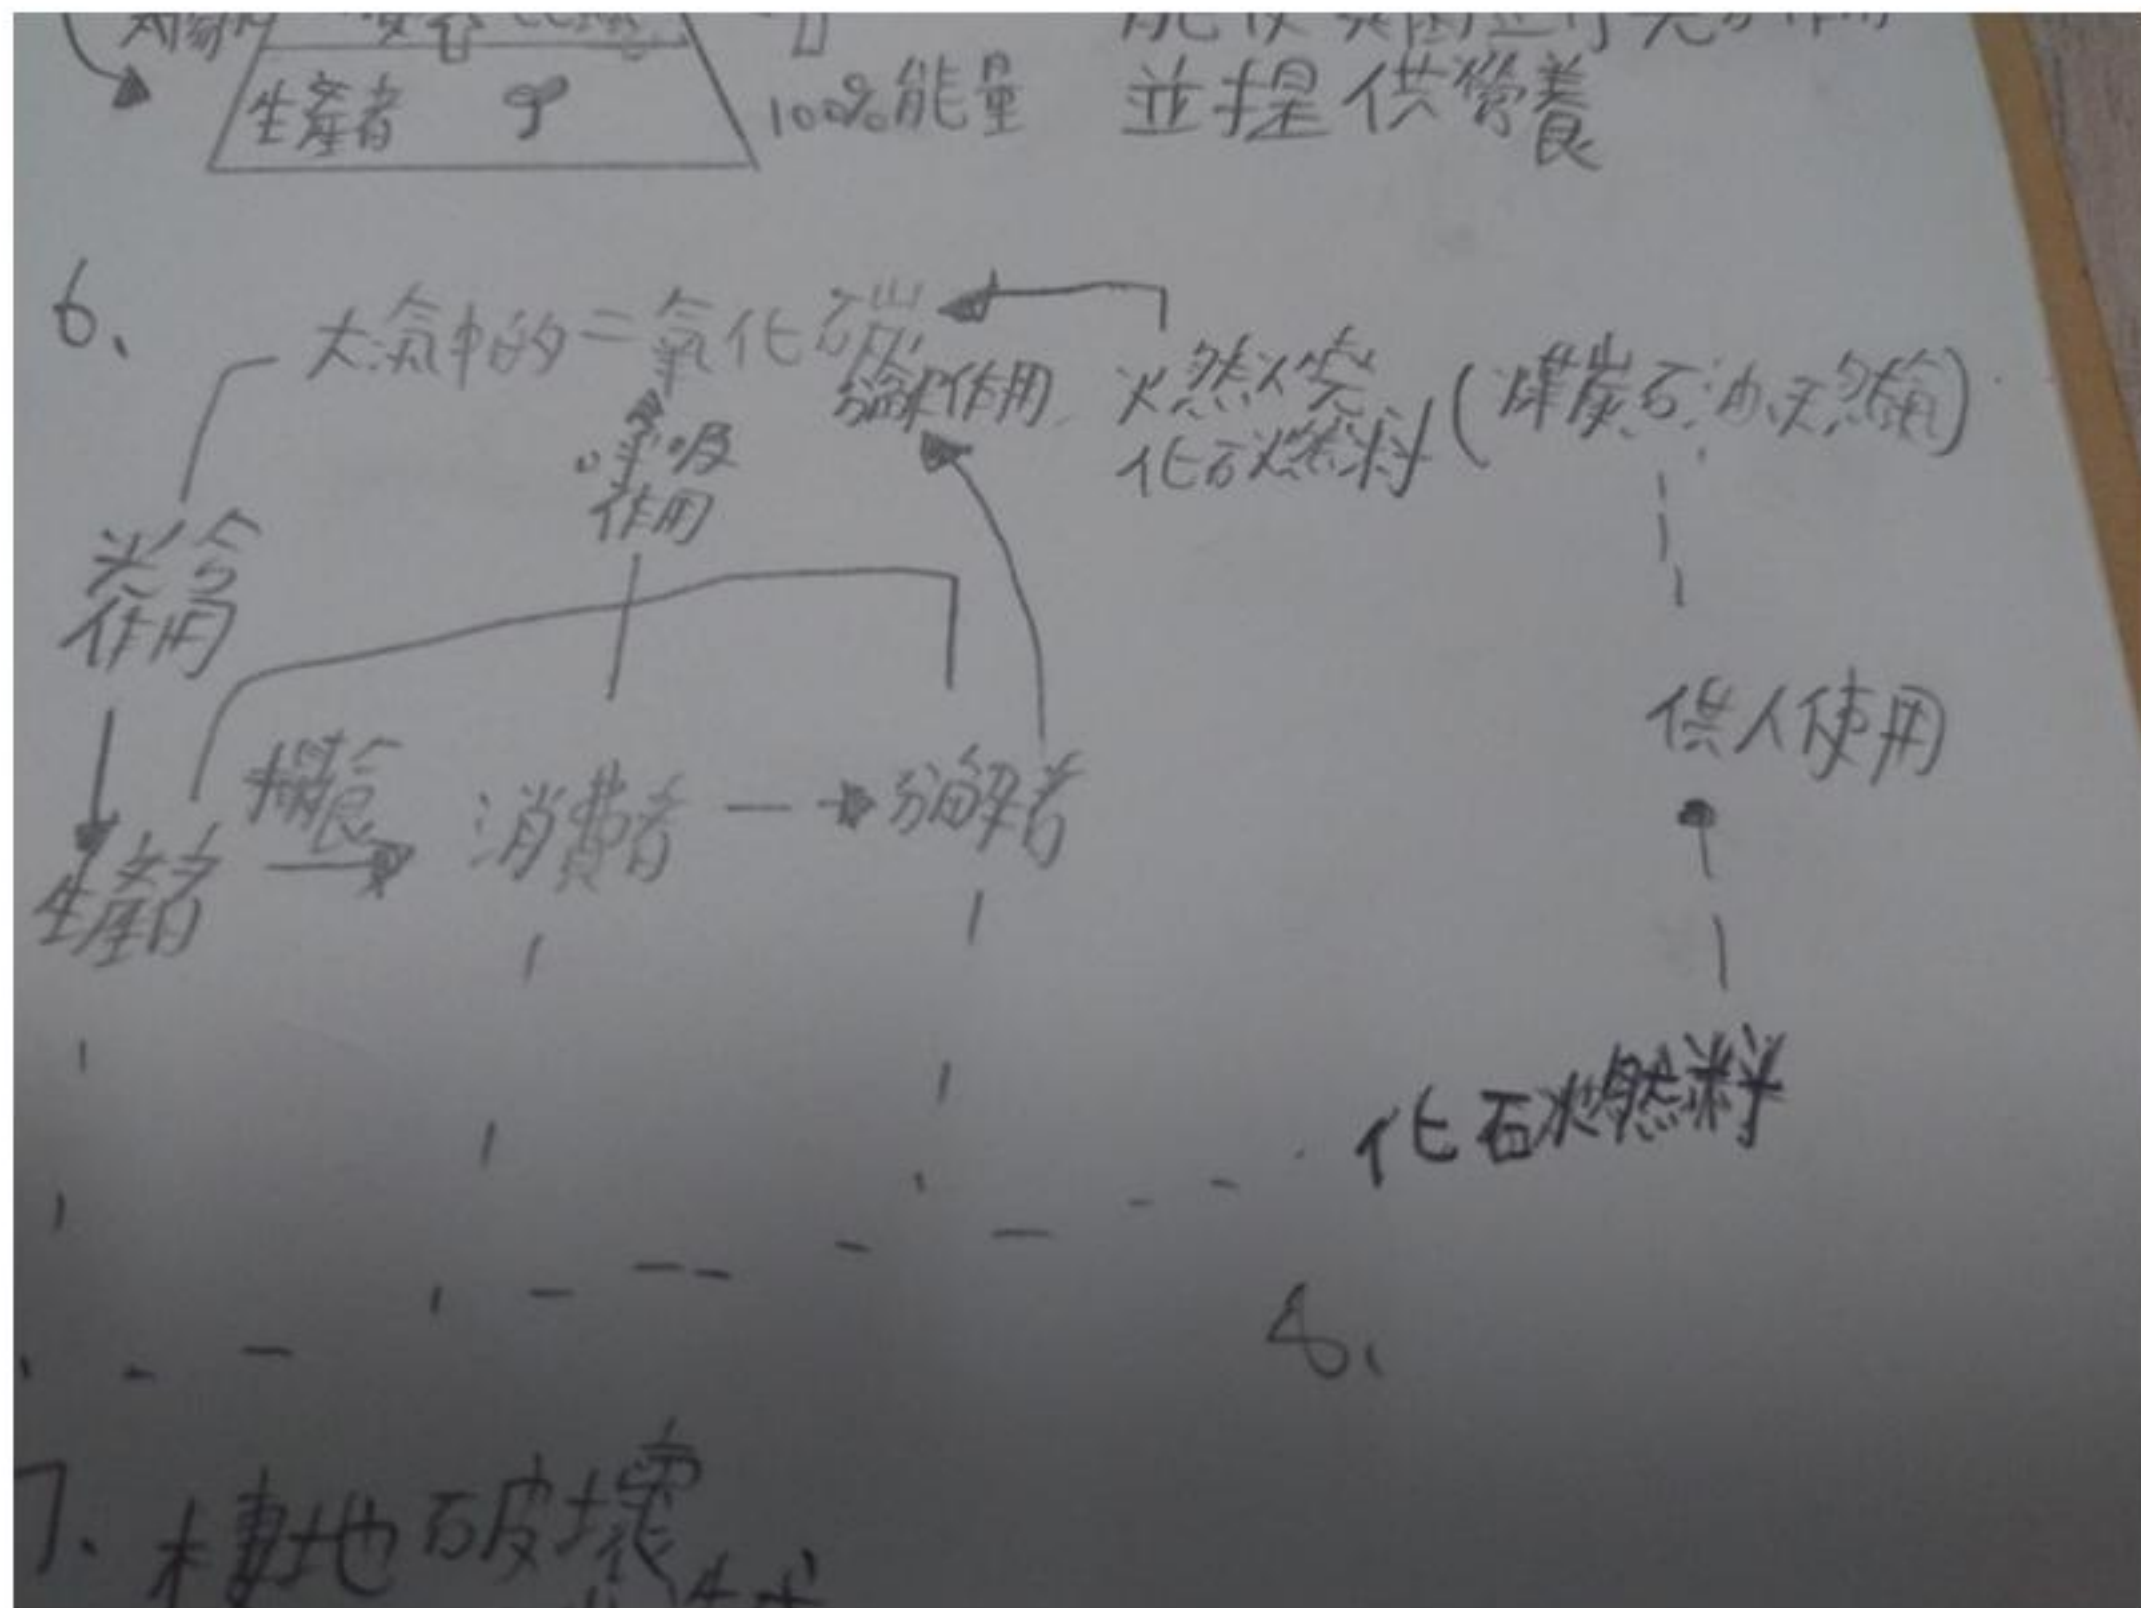 生產者
100%能量
並提供營養
6、
大氣中的二氧化碳
分解作用
燃燒
化石燃料(煤炭、石油、天然氣)
呼吸
作用
光合
作用
供人使用
攝食
消費者
分解者
生產者
化石燃料
8、
7、棲地破壞